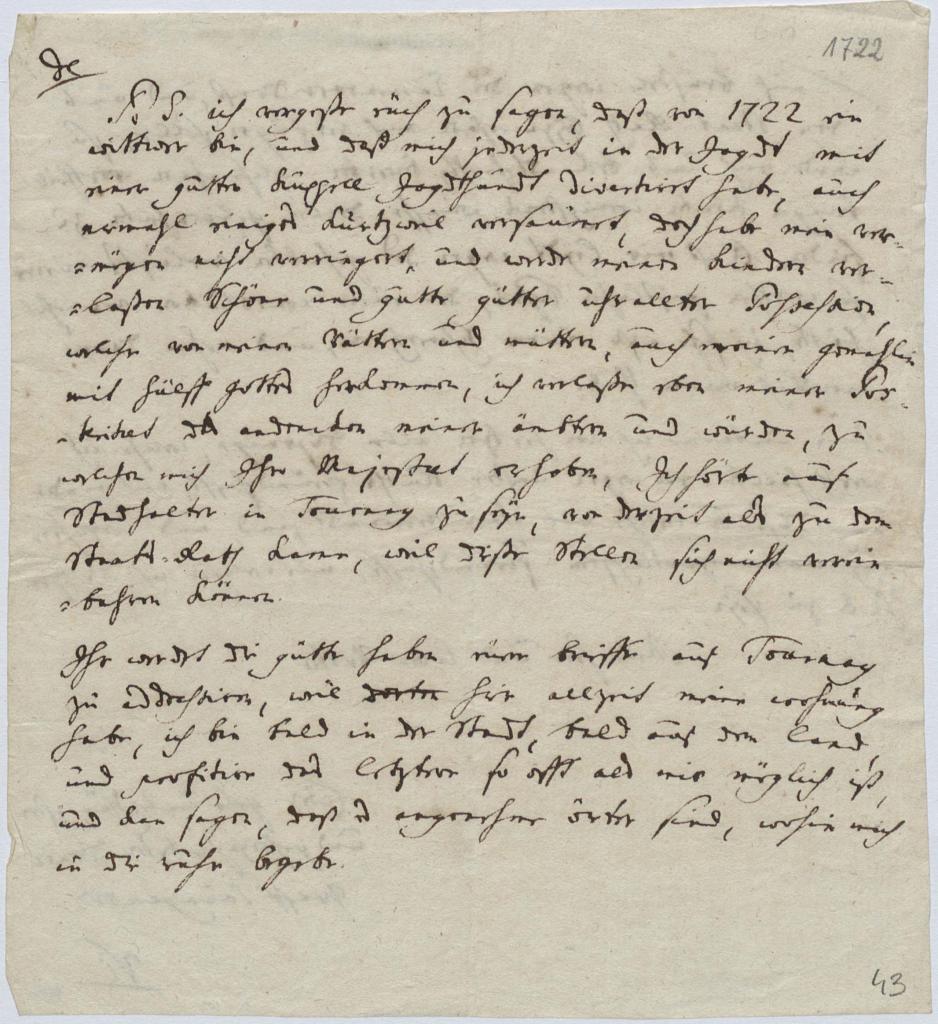 1722
P. S. ich vergeße euch zu sagen, daß von 1722 ein
wittwer bin, und daß mich jederzeit in der Jagdt mit
einer gutten kuppell Jagdthundt divertiret habe, auch
niemahl einiges kurtzweil versaumet, doch habe mein ver=
=mögen nicht verringert, und werde meinen kindern ver=
=laßen schöne und gutte gütter uhrallter Possession,
welche von meinen Vättern und müttern, auch meiner gemahlin
mit hülff gottes herkommen, ich verlaße eben meiner Pos=
=teritet das andencken meiner ämbter und würden, zu
welchen mich Ihro Majestaet erhoben, Ich hörte auf
Stadhalter in Tournay zu seyn, von derzeit als zu dem
Staats=Rath kame, weil diße Stellen sich nicht verein
=bahren können.
Ihr werdet die gütte haben eure brieffe auf Tournay
zu addressiren, weil dorten hier allzeit meine wohnung
habe, ich bin bald in der Stadt, bald auf dem land,
und profitire das letztere so offt als mir möglich ist,
und kan sagen, daß es angenehme örter sind, wohin mich
in die ruhe begebe.
43